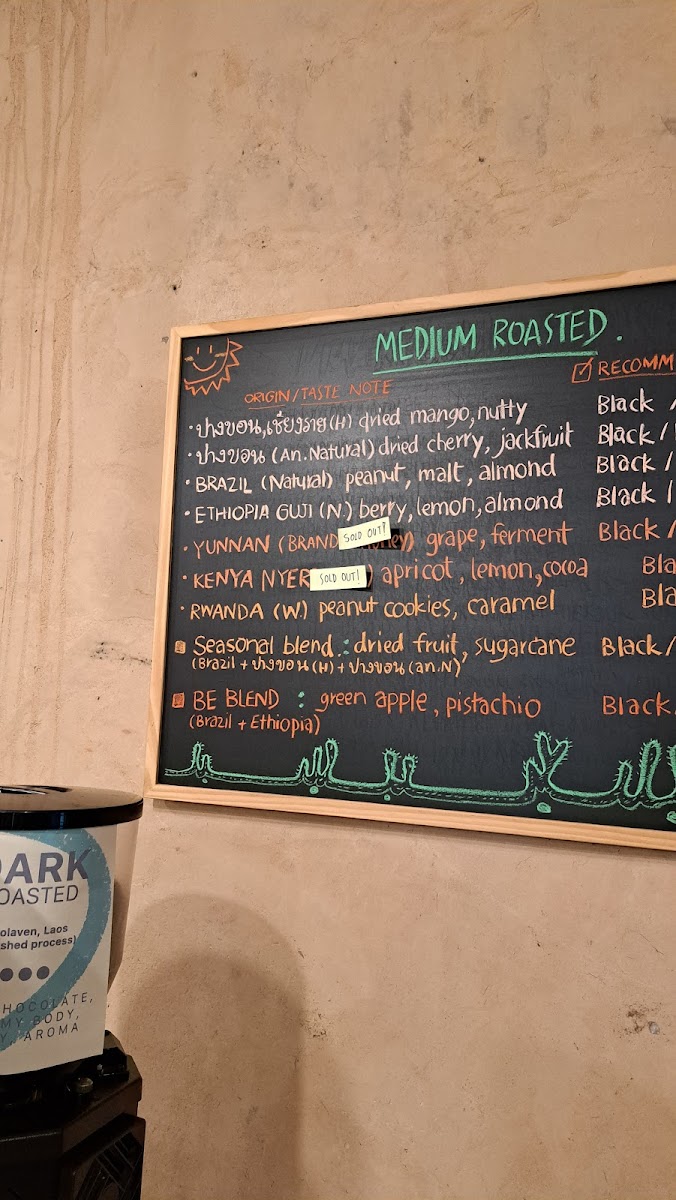 MEDIUM ROASTED.
ORIGIN/TASTE NOTE
☑ RECOMM
• ปางขอน,เชียงราย (H) dried mango, nutty Black /
• ปางขอน (An.Natural) dried cherry, jackfruit Black /
• BRAZIL (Natural) peanut, malt, almond Black /
• ETHIOPIA GUJI (N.) berry, lemon, almond Black /
• YUNNAN (BRAND SOLD OUT! ney) grape, ferment Black /
• KENYA NYER SOLD OUT! ) apricot, lemon, cocoa Bla
• RWANDA (W) peanut cookies, caramel Bla
Seasonal blend : dried fruit, sugarcane Black/
(Brazil + ปางขอน (H) + ปางขอน (an.N)
BE BLEND : green apple, pistachio Black/
(Brazil + Ethiopia)
DARK
OASTED
olaven, Laos
shed process)
HOCOLATE,
MY BODY,
Y, AROMA